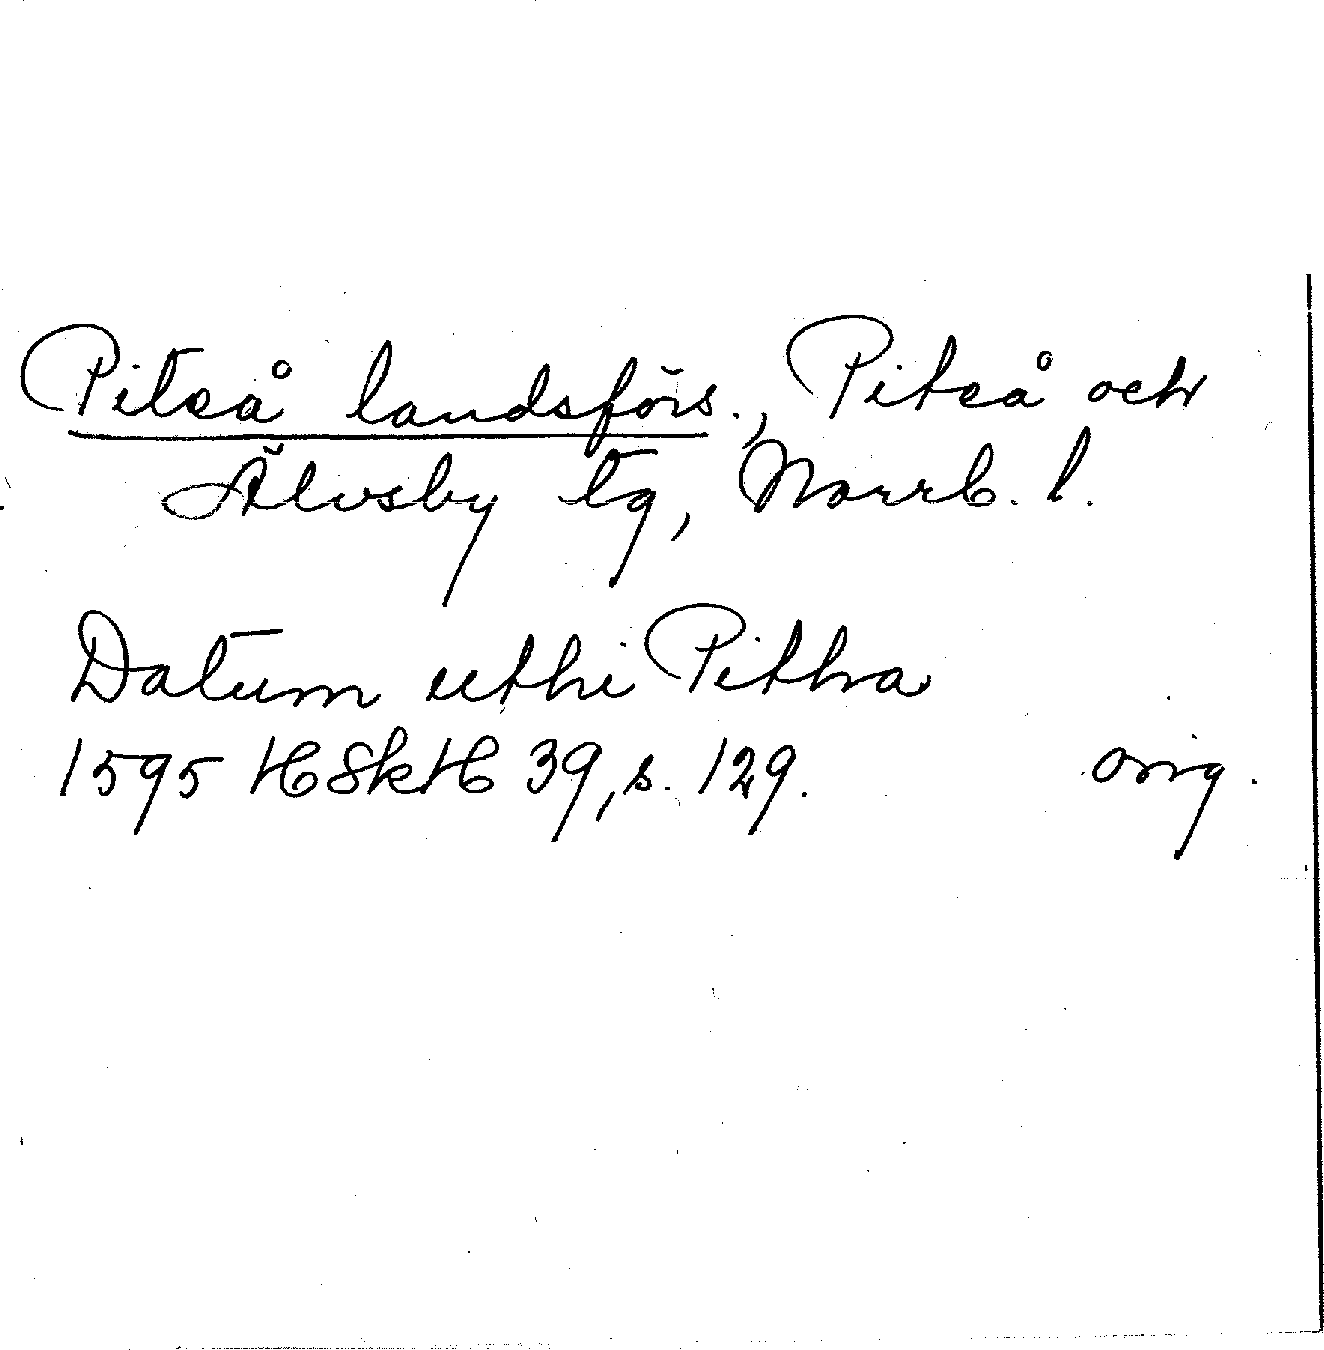 Piteå landsförs., Piteå och
Älvsby tg, Norrb. l.
Datum uthi Pitha
1595 HSkH 39, s. 129. orig.